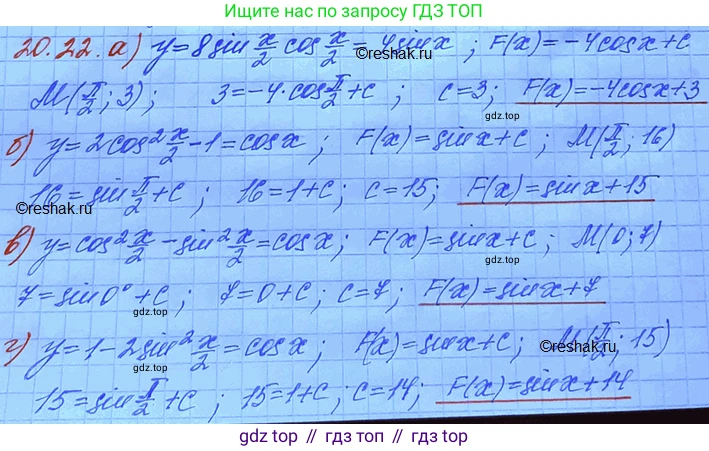 Ищите нас по запросу ГДЗ ТОП
20.22. а) y=8sin x/2 cos x/2 = 4sinx ; F(x)=-4cosx+c
M(π/2; 3) ; 3=-4·cos π/2+c ; c=3; F(x)=-4cosx+3
gdz.top
б) y=2cos² x/2-1=cosx ; F(x)=sinx+c ; M(π/2; 16)
16=sin π/2+c ; 16=1+c ; c=15 ; F(x)=sinx+15
©reshak.ru
©reshak.ru
gdz.top
в) y=cos² x/2-sin² x/2=cosx ; F(x)=sinx+c ; M(0; 7)
7=sin0°+c ; 7=0+c ; c=7 ; F(x)=sinx+7
gdz.top
gdz.top
г) y=1-2sin² x/2=cosx ; F(x)=sinx+c ; M(π/2; 15)
©reshak.ru
15=sin π/2+c ; 15=1+c ; c=14; F(x)=sinx+14
gdz.top
gdz.top // гдз топ // гдз.top